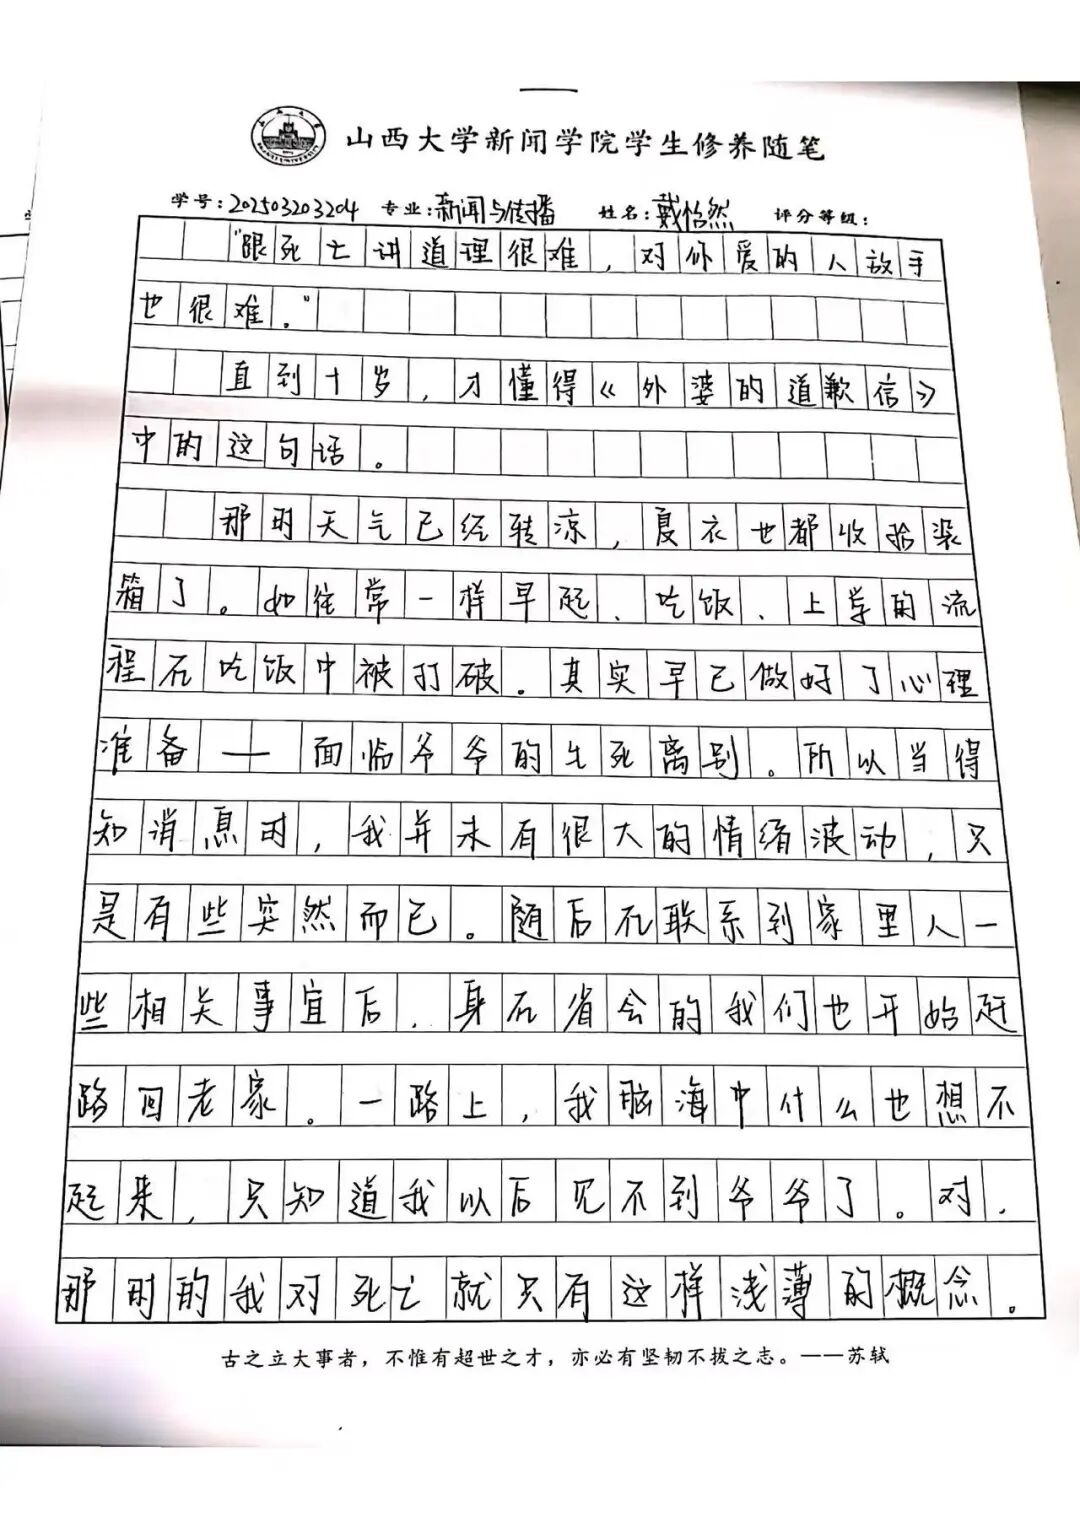 山西大学新闻学院学生修养随笔
学号:202503203204 专业:新闻与传播 姓名:戴怡然 评分等级:
"跟死亡讲道理很难，对你爱的人放手
也很难。"
直到十岁，才懂得《外婆的道歉信》
中的这句话。
那时天气已经转凉，夏衣也都收拾装
箱了。如往常一样早起、吃饭、上学的流
程在吃饭中被打破。其实早已做好了心理
准备——面临爷爷的生死离别。所以当得
知消息时，我并未有很大的情绪波动，只
是有些突然而已。随后在联系到家里人一
些相关事宜后，身在省会的我们也开始赶
路回老家。一路上，我脑海中什么也想不
起来，只知道我以后见不到爷爷了。对，
那时的我对死亡就只有这样浅薄的概念。
古之立大事者，不惟有超世之才，亦必有坚韧不拔之志。——苏轼